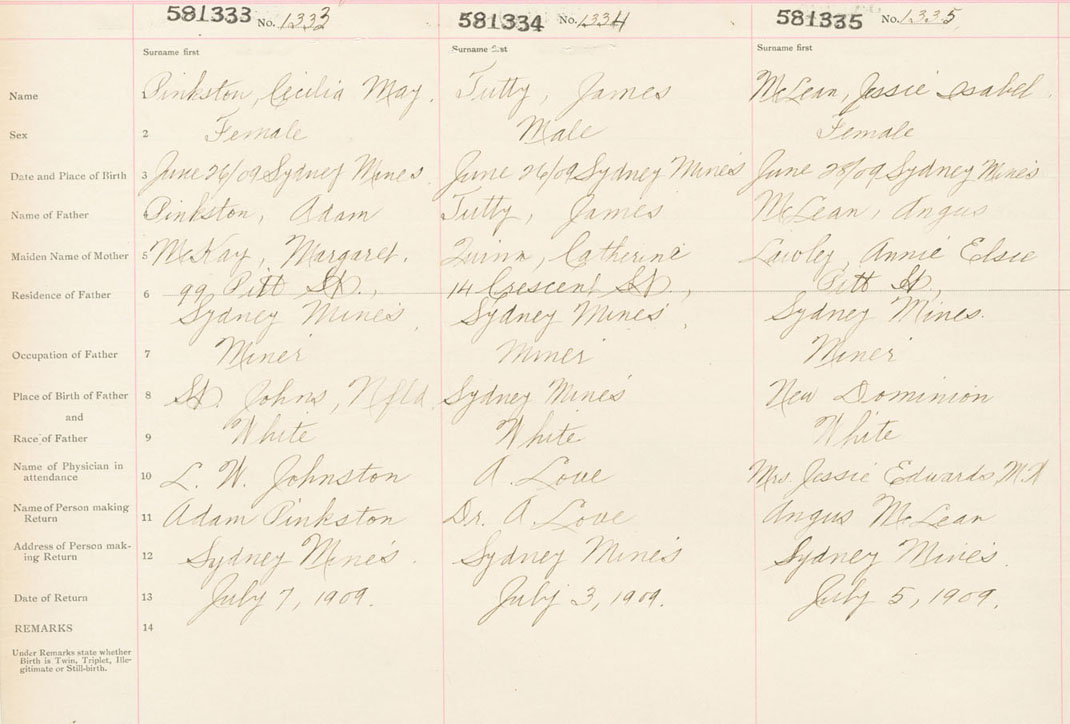 581333 No. 1333 581334 No. 1334 581335 No. 1335
Surname first Surname first Surname first
Name 1 Pinkston, Cecilia May. Tutty, James McLean, Jessie Isabel.
Sex 2 Female Male Female
Date and Place of Birth 3 June 26/09 Sydney Mines. June 26/09 Sydney Mines June 28/09 Sydney Mines
Name of Father 4 Pinkston, Adam Tutty, James McLean, Angus
Maiden Name of Mother 5 McKay, Margaret. Quinn, Catherine Annie Elsie
Residence of Father 6 99 Pitt St., 14 Crescent St., Pitt St,
Sydney Mines, Sydney Mines, Sydney Mines.
Occupation of Father 7 Miner Miner Miner
Place of Birth of Father 8 St. Johns, Nfld. Sydney Mines New Dominion
and
Race of Father 9 White White White
Name of Physician in
attendance 10 L. W. Johnston A. Love Mrs. Jessie Edwards, M.
Name of Person making
Return 11 Adam Pinkston Dr. A. Love Angus McLean
Address of Person mak-
ing Return 12 Sydney Mines. Sydney Mines Sydney Mines.
Date of Return 13 July 7, 1909. July 3, 1909. July 5, 1909.
REMARKS 14
Under Remarks state whether
Birth is Twin, Triplet, Ille-
gitimate or Still-birth.